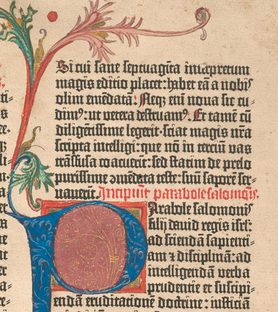 Si cui sane septuagīta interpretum
magis editio placet: habet eā a nobis
olim emēdatā. Neqʒ eni noua sic cu-
dimꝰ: ut vetera destruamꝰ. Et tamē cū
diligētissime legerit: sciat magis nr̄a
scripta intelligi: que nō in terciū vas
trāsfusa coacuerīt: sed statim de prelo
purissime ꝯmēdata teste: suū saporē ser-
uauerīt. Incipiūt parabole salomōis.
Parabole salomonis
filij dauid regis isrl̄:
ad sciendā sapienti-
am ⁊ disciplinā: ad
intelligendā verba
prudentie et suscipi-
endā eruditionē doctrine: iusticiā